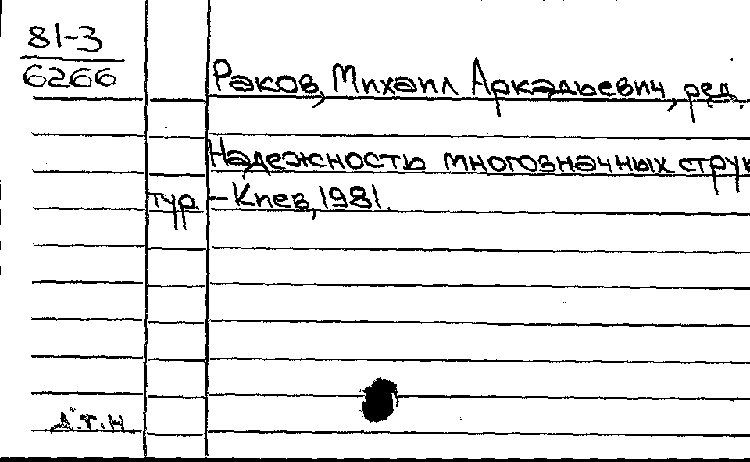 81-3
6266
Раков, Михаил Аркадьевич, ред.
Надежность многозначных струк
тур - Киев, 1981.
д.т.н